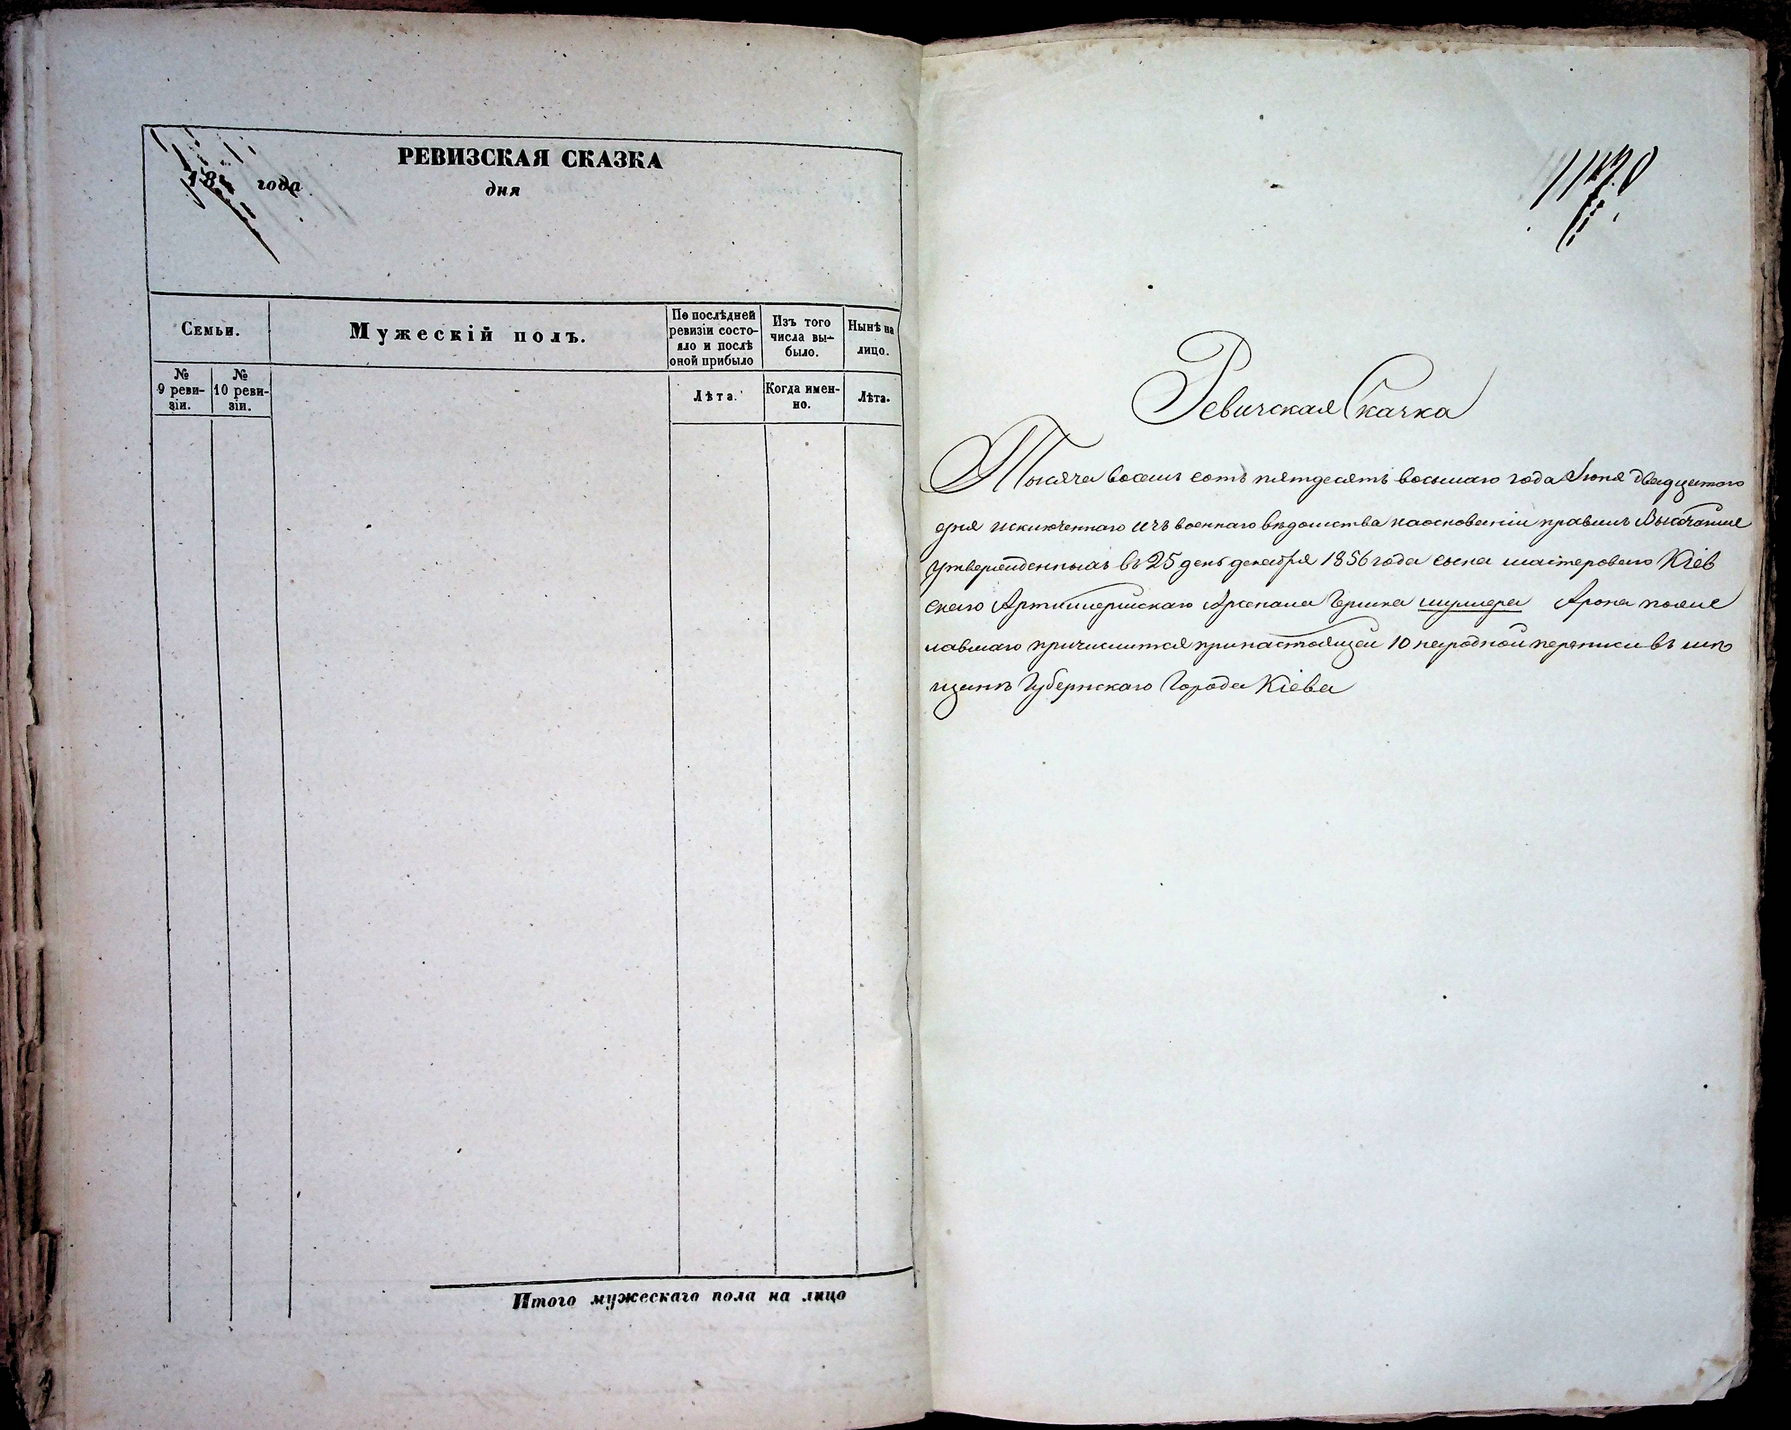 РЕВИЗСКАЯ СКАЗКА
18 года дня
Семьи.
Мужескій полъ.
По послѣдней
ревизіи состо-
яло и послѣ
оной прибыло
Изъ того
числа вы-
было.
Нынѣ на
лицо.
№
9 реви-
зіи.
№
10 реви-
зіи.
Лѣта.
Когда имен-
но.
Лѣта.
Итого мужескаго пола на лицо
Ревизская Сказка
Тысяча восемь сотъ пятдесятъ восьмаго года Іюня двадцатого
дня исключеннаго изъ военнаго вѣдомства наоснованіи правилъ Высочайше
утвержденныхъ въ 25 день декабря 1856 года сына мастероваго Кіев
скаго Артиллерійскаго Арсенала шуллера Арона поже
лавшаго причислится принастоящей 10 народной переписи въ мѣ
щане Губернскаго Города Кіева